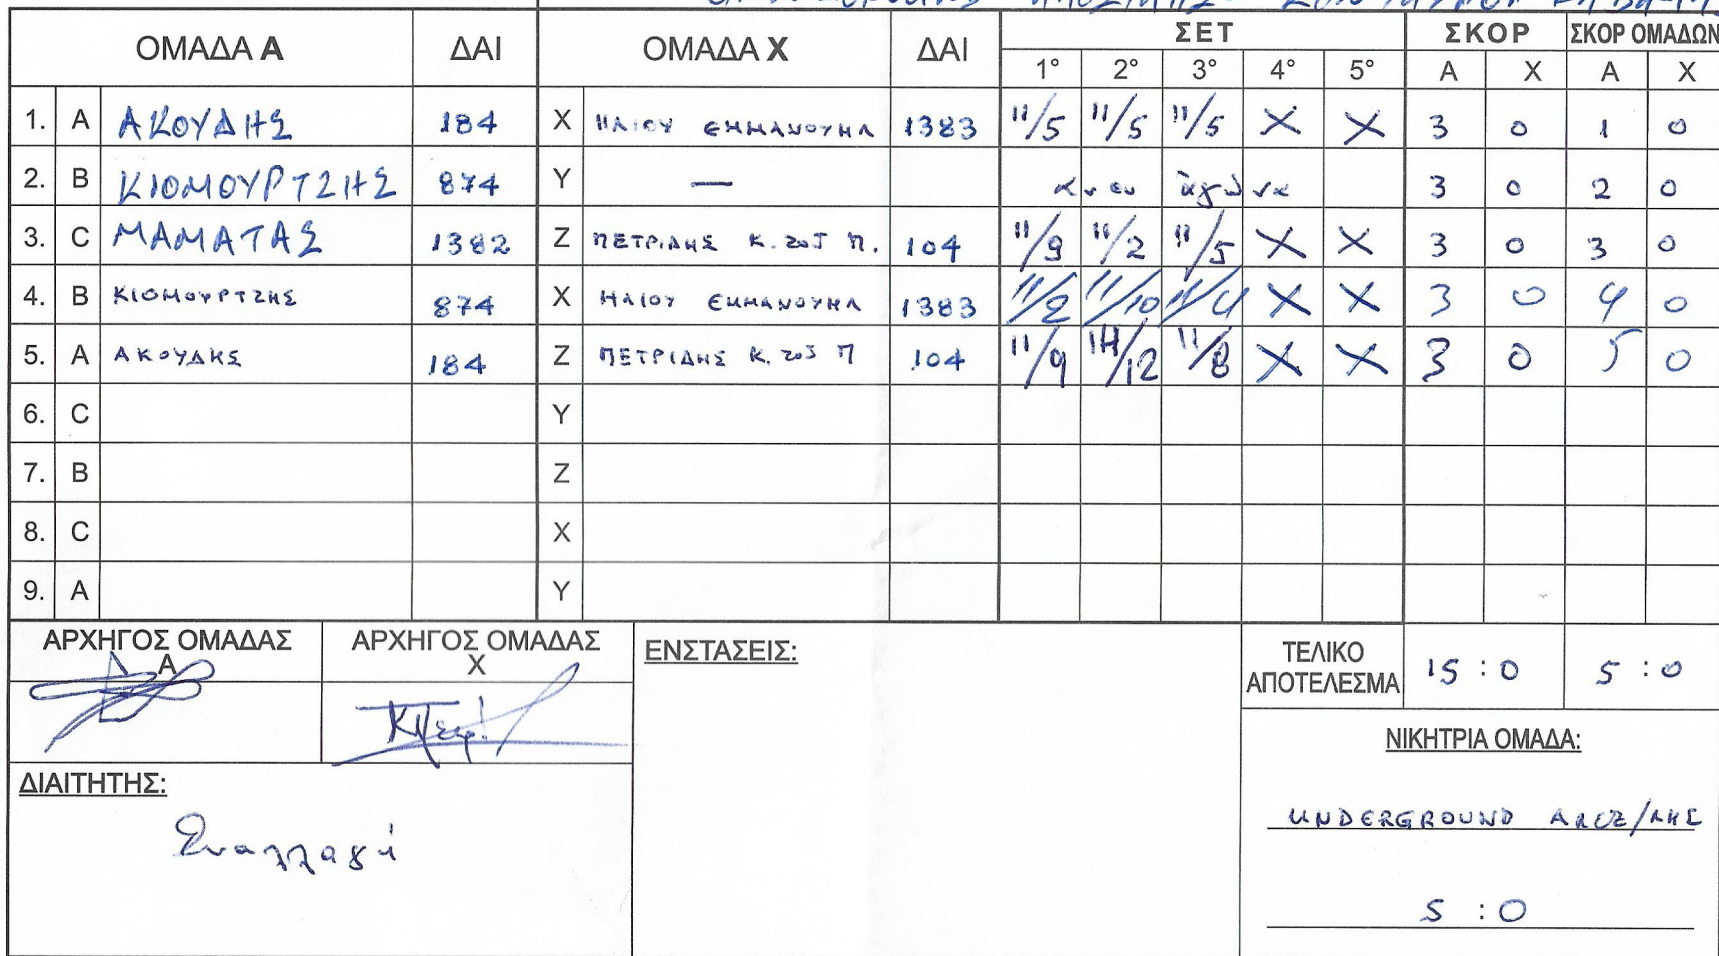 ΟΜΑΔΑ Α ΔΑΙ ΟΜΑΔΑ Χ ΔΑΙ ΣΕΤ ΣΚΟΡ ΣΚΟΡ ΟΜΑΔΩΝ
1° 2° 3° 4° 5° Α Χ Α Χ
1. A ΑΚΟΥΔΗΣ 184 X ΗΛΙΟΥ ΕΜΜΑΝΟΥΗΛ 1383 11/5 11/5 11/5 X X 3 0 1 0
2. B ΚΙΟΜΟΥΡΤΖΗΣ 874 Y — άνευ αγώνα 3 0 2 0
3. C ΜΑΜΑΤΑΣ 1382 Z ΠΕΤΡΙΔΗΣ Κ. του Π. 104 11/9 11/2 11/5 X X 3 0 3 0
4. B ΚΙΟΜΟΥΡΤΖΗΣ 874 X ΗΛΙΟΥ ΕΜΜΑΝΟΥΗΛ 1383 11/2 11/10 11/4 X X 3 0 4 0
5. A ΑΚΟΥΔΗΣ 184 Z ΠΕΤΡΙΔΗΣ Κ. του Π 104 11/9 14/12 11/8 X X 3 0 5 0
6. C Y
7. B Z
8. C X
9. A Y
ΑΡΧΗΓΟΣ ΟΜΑΔΑΣ Α ΑΡΧΗΓΟΣ ΟΜΑΔΑΣ Χ ΕΝΣΤΑΣΕΙΣ: ΤΕΛΙΚΟ ΑΠΟΤΕΛΕΣΜΑ 15 : 0 5 : 0
ΝΙΚΗΤΡΙΑ ΟΜΑΔΑ:
ΔΙΑΙΤΗΤΗΣ:
UNDERGROUND
Συαλλαγή
5 : 0